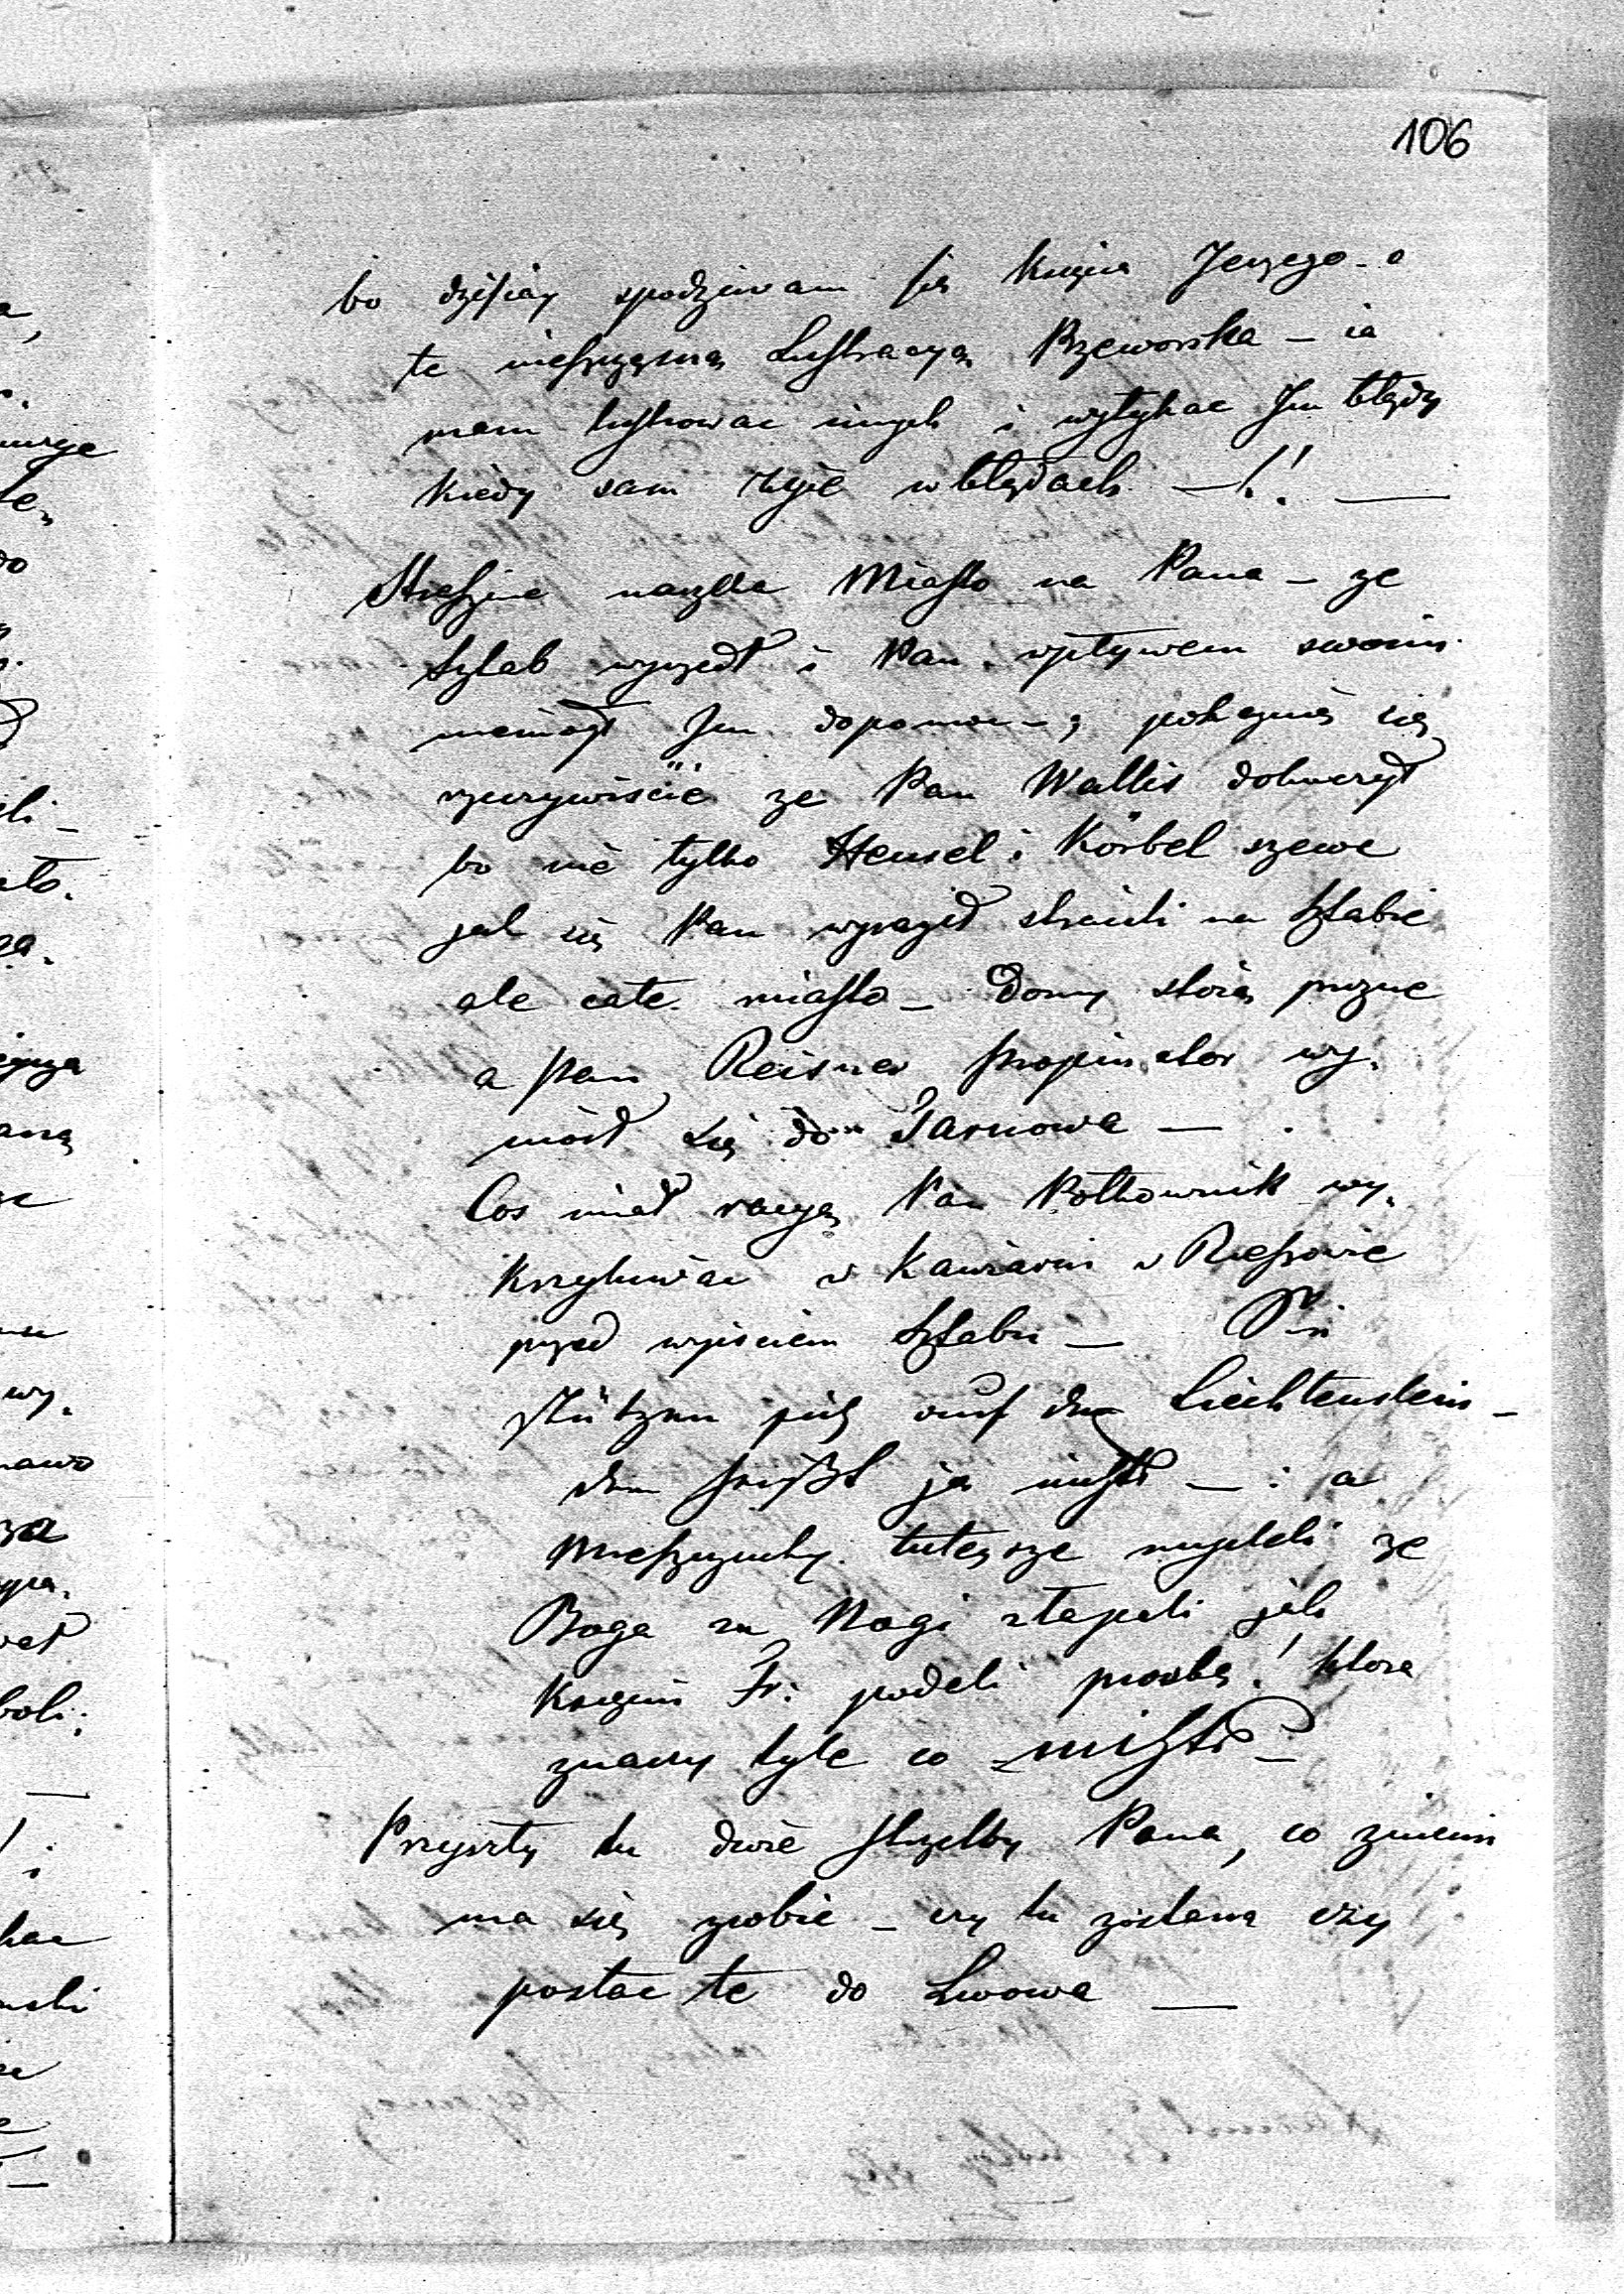 106
bo dzisiay spodziwam się Xięcia Jerzego - o
te nieszczęsną Lustracyą Przeworska - ia
mam lustrowac innych i wytykac Im błędy
kiedy sam zyie w błędach —!. —
Strasznie narzeka Miasto na Pana - ze
Sztab wyszedł i Pan wpływem swoim
niemógł Im dopomoc - ; pokazuie się
rzeczywiscie ze Pan Wallis dokuczył
bo nie tylko Hensel i Körbel szewc
jak się Pan wyraził stracili na Sztabie
ale całe miasto - Domy stoią puzne
a Pan Reisner propinator wy.
niósł się do Tarnowa — .
Cos miał racyą Pan Pułkownik wy.
krzykiwac w Kawiarni w Rzeszowie
przed wyisciem Sztabu — Sie
stützen sich auf den Liechtenstein -
der ja nichts — : a
Mieszczuchy tuteysze mysleli ze
Boga za Nogi złapali jak
Xięciu Fr: podali prosbę! ktora
znaczy tyle co nichts -
Przyszły tu dwie strzelby Pana, co z niemi
ma się zrobic - czy tu zostaną czy
posłac te do Lwowa —